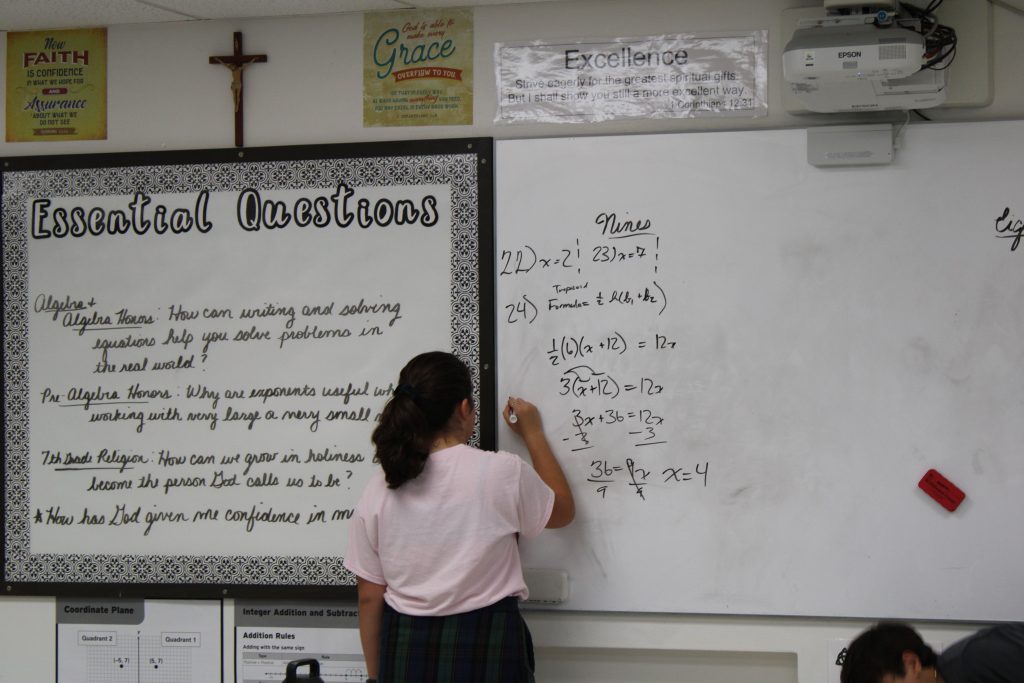 Now
FAITH
IS CONFIDENCE
IN WHAT WE HOPE FOR
AND
Assurance
ABOUT WHAT WE
DO NOT SEE
God is able to
make every
Grace
OVERFLOW TO YOU
Excellence
Strive eagerly for the greatest spiritual gifts.
But I shall show you still a more excellent way.
I Corinthians 12:31
EPSON
Essential Questions
Algebra +
Algebra Honors: How can writing and solving
equations help you solve problems in
the real world?
Pre-Algebra Honors: Why are exponents useful wh
working with very large a very small
7th Grade Religion: How can we grow in holiness
become the person God calls us to be?
* How has God given me confidence in m
Nines
22) x=2 23) x=7
24) Trapezoid
Formula= ½ h(b₁+b₂)
½(6)(x+12) = 12x
3(x+12) = 12x
3x+36=12x
-3 -3
36=9x x=4
9 9
Coordinate Plane
Quadrant 2 Quadrant 1
(-5, 7) (5, 7)
Integer Addition and Subtrac
Addition Rules
Adding with the same sign